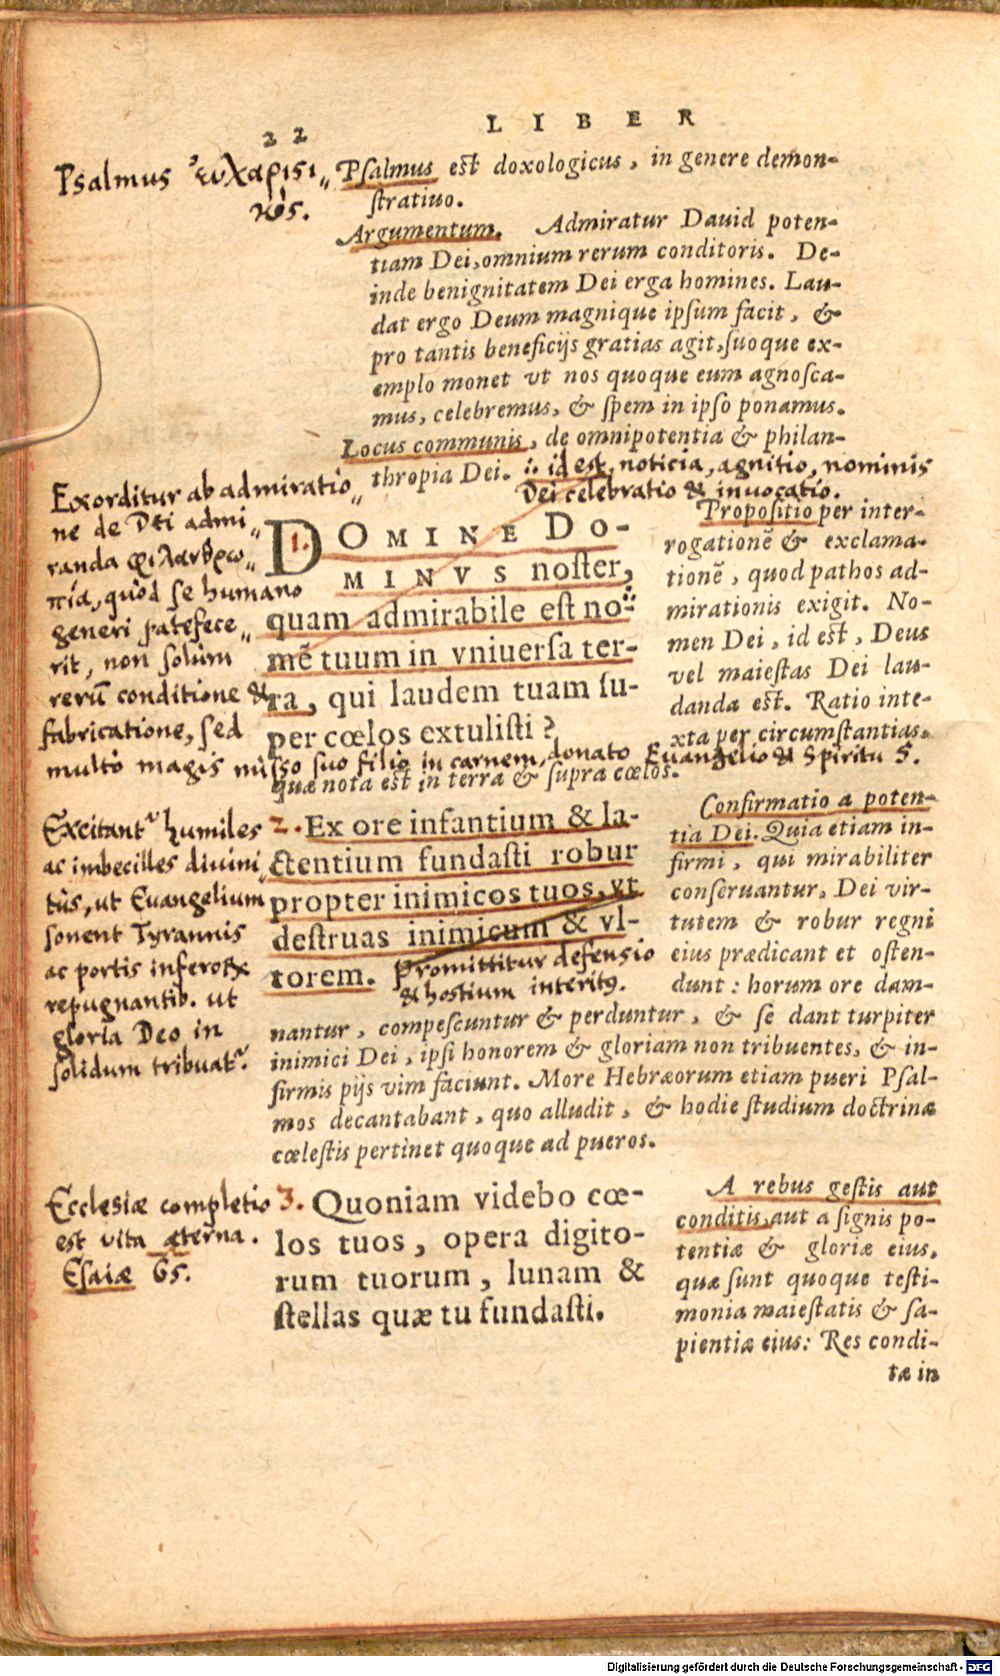 22
LIBER
Psalmus ἐυχαρισι„
κός.
Psalmus est doxologicus, in genere demon-
stratiuo.
Argumentum. Admiratur Dauid poten-
tiam Dei, omnium rerum conditoris. De-
inde benignitatem Dei erga homines. Lau-
dat ergo Deum magnique ipsum facit, &
pro tantis beneficijs gratias agit, suoque ex-
emplo monet vt nos quoque eum agnosca-
mus, celebremus, & spem in ipso ponamus.
Locus communis, de omnipotentia & philan-
thropia Dei. ∴ id est, noticia, agnitio, nominis
Dei celebratio & invocatio.
Exorditur ab admiratio„
ne de Dei admi„
randa φιλανθρω„
πία, quòd se humano
generi patefece„
rit, non solùm
rerū conditione &
fabricatione, sed
multò magis misso suo filio in carnem, donato Euangelio & Spiritu S.
1. DOMINE DO-
MINVS noster,
quam admirabile est no-
mē tuum in vniuersa ter-
ra, qui laudem tuam su-
per cœlos extulisti?
quæ nota est in terra & supra cœlos.
Propositio per inter-
rogationē & exclama-
tionē, quod pathos ad-
mirationis exigit. No-
men Dei, id est, Deus
vel maiestas Dei lau-
danda est. Ratio inte-
xta per circumstantias.
Excitantʳ humiles
ac imbecilles divini„
tùs, ut Euangelium
sonent Tyrannis
ac portis inferoꝝ
repugnantib. ut
gloria Deo in
solidum tribuatʳ.
2. Ex ore infantium & la-
ctentium fundasti robur
propter inimicos tuos, vt
destruas inimicum & vl-
torem. Promittitur defensio
& hostium interitꝰ.
Confirmatio a poten-
tia Dei. Quia etiam in-
firmi, qui mirabiliter
conseruantur, Dei vir-
tutem & robur regni
eius prædicant et osten-
dunt: horum ore dam-
nantur, compescuntur & perduntur, & se dant turpiter
inimici Dei, ipsi honorem & gloriam non tribuentes, & in-
firmis pijs vim faciunt. More Hebræorum etiam pueri Psal-
mos decantabant, quo alludit, & hodie studium doctrinæ
cœlestis pertinet quoque ad pueros.
Ecclesiæ completio
est vita æterna.
Esaiæ 65.
3. Quoniam videbo cœ-
los tuos, opera digito-
rum tuorum, lunam &
stellas quæ tu fundasti.
A rebus gestis aut
conditis, aut a signis po-
tentiæ & gloriæ eius,
quæ sunt quoque testi-
monia maiestatis & sa-
pientiæ eius: Res condi-
tæ in
Digitalisierung gefördert durch die Deutsche Forschungsgemeinschaft - DFG